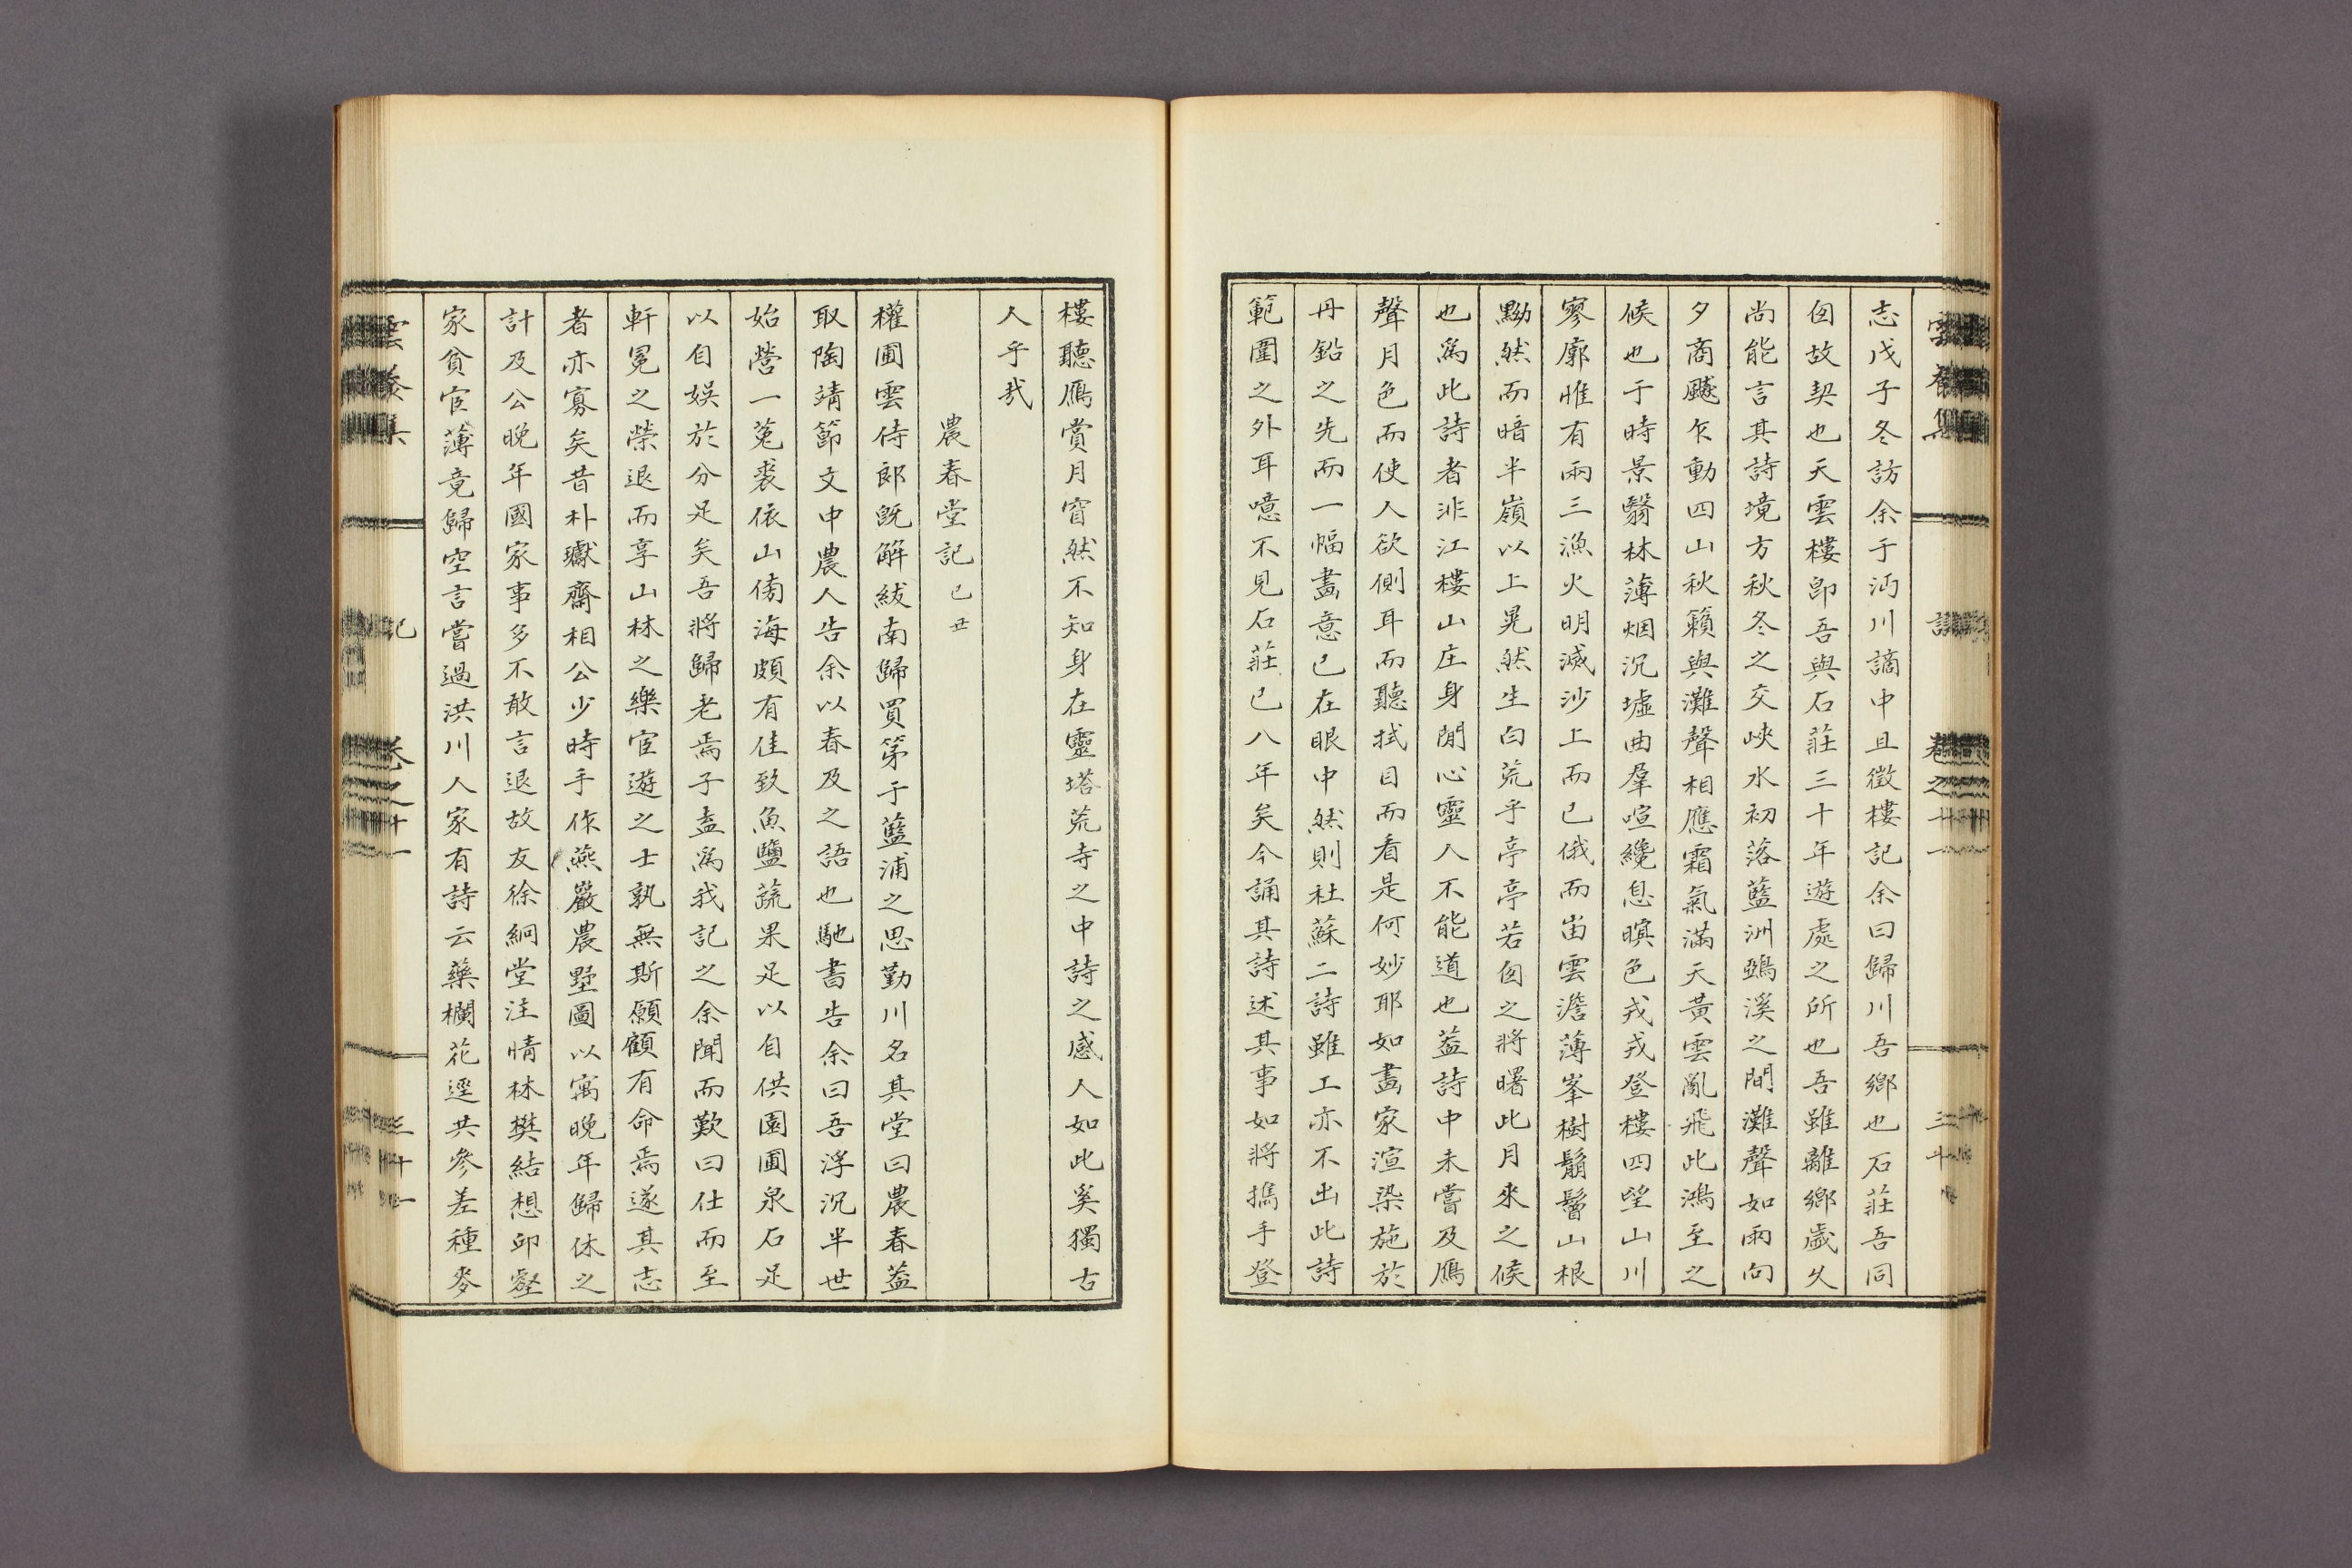 志戊子冬訪余于沔川謫中且徵樓記余曰歸川吾鄉也石莊吾同
囱故契也天雲樓卽吾與石莊三十年遊處之所也吾雖離鄉歲久
尚能言其詩境方秋冬之交峽水初落藍洲鵶溪之間灘聲如雨向
夕商飈乍動四山秋籟與灘聲相應霜氣滿天黃雲亂飛此鴻至之
候也于時景翳林薄烟沉墟曲羣喧纔息暝色戎戎登樓四望山川
寥廓惟有兩三漁火明滅沙上而已俄而出雲澹薄峯樹鬅鬙山根
黝然而暗半嶺以上晃然生白荒乎亭亭若囱之將曙此月來之候
也爲此詩者非江樓山庄身閒心靈人不能道也盖詩中未嘗及鴈
聲月色而使人欲側耳而聽拭目而看是何妙耶如畵家渲染施於
丹鉛之先而一幅畵意已在眼中然則杜蘇二詩雖工亦不出此詩
範圍之外耳噫不見石莊已八年矣今誦其詩述其事如將携手登
樓聽鴈賞月窅然不知身在靈塔荒寺之中詩之感人如此奚獨古
人乎哉
農春堂記 己丑
權圃雲侍郎旣解紱南歸買第于藍浦之思勤川名其堂曰農春盖
取陶靖節文中農人告余以春及之語也馳書告余曰吾浮沉半世
始營一菟裘依山傍海頗有佳致魚鹽蔬果足以自供園圃泉石足
以自娛於分足矣吾將歸老焉子盍爲我記之余聞而歎曰仕而至
軒冕之榮退而享山林之樂宦遊之士孰無斯願顧有命焉遂其志
者亦寡矣昔朴瓛齋相公少時手作燕巖農墅圖以寓晚年歸休之
計及公晚年國家事多不敢言退故友徐絅堂注情林樊結想邱壑
家貧宦薄竟歸空言嘗過洪川人家有詩云藥欄花逕共參差種麥
雲養集 記 卷之十一 三十一